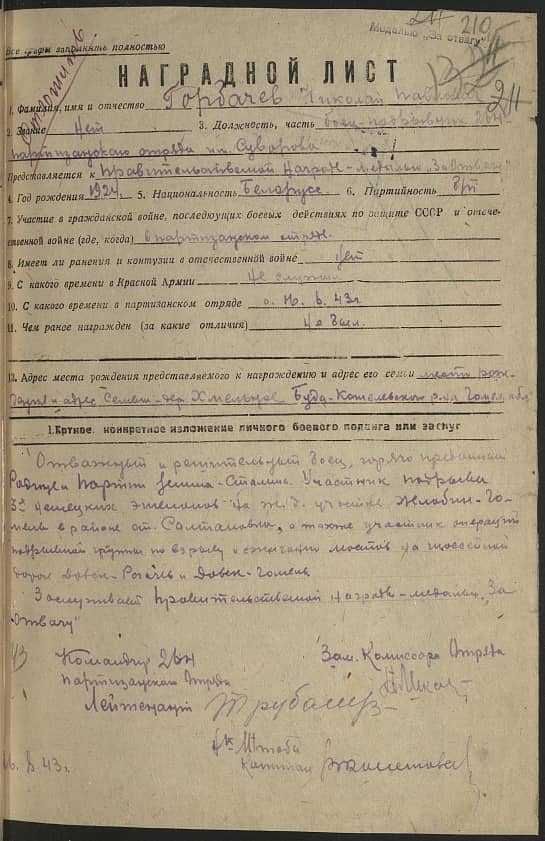 211 210
Медалью "За отвагу"
Все графы заполнять полностью
211
НАГРАДНОЙ ЛИСТ
1. Фамилия, имя и отчество Горбачев Николай
2. Звание Нет 3. Должность, часть боец-подрывник 264
партизанского отряда им. Суворова
Представляется к правительственной награде - медаль "За Отвагу"
4. Год рождения 1924г. 5. Национальность Белорусс. 6. Партийность б/п
7. Участие в гражданской войне, последующих боевых действиях по защите СССР и отече-
ственной войне (где, когда) в партизанском отряде.
8. Имеет ли ранения и контузии в отечественной войне нет
9. С какого времени в Красной Армии не служил
10. С какого времени в партизанском отряде 43г.
11. Чем ранее награжден (за какие отличия) не был.
12. Адрес места рождения представляемого к награждению и адрес его семьи место рож-
дения и адрес семьи - дер. Буда-Кошелевского р-на Гомел. обл.
I. Крткое, конкретное изложение личного боевого подвига или заслуг
Отважный и решительный боец, горячо преданный
Родине и партии Ленина-Сталина. Участник подрыва
3х немецких эшелонов на ж.д. участке Жлобин-Го-
мель в районе ст. Салтановка, а также участник операций
подрывной группы по взрыву и сжиганию мостов на шоссейной
дороге Довск-Рогачев и Довск-Гомель.
Заслуживает правительственной награды - медаль "За
Отвагу"
Командир 264 Зам. Комиссара Отряда
партизанского Отряда
Лейтенант
Штаба
Капитан
43г.